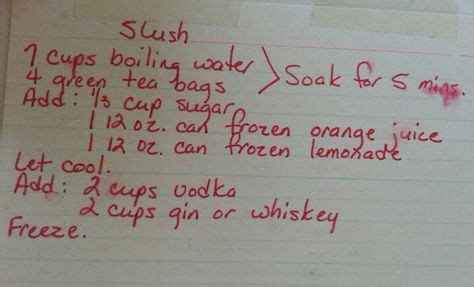 Slush
7 cups boiling water
4 green tea bags
Soak for 5 mins.
Add: 1/3 cup sugar
1 12 oz. can frozen orange juice
1 12 oz. can frozen lemonade
Let cool.
Add: 2 cups vodka
2 cups gin or whiskey
Freeze.